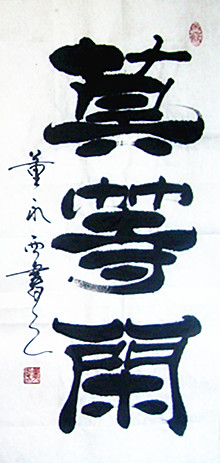 莫等閑
董永西書之